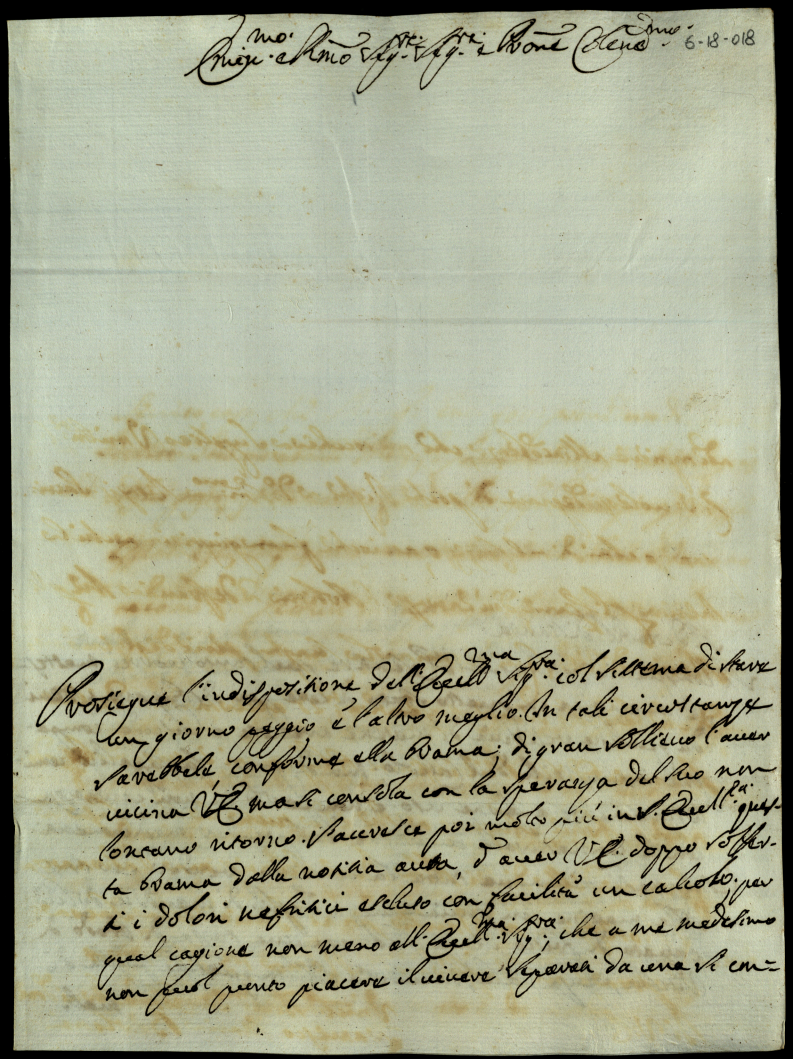 Emin.mo e R.mo Sig.re Sig.re e Pron.e Colend.mo
6-18-018
Prosiegue l'indispositione dell'Eccell.ma Sig.ra col sistema di stare
un giorno peggio e l'altro meglio. In tali circostanze
sarebbele conforme ella brama, di gran sollievo l'aver
vicina VE ma si consola con la speranza del suo non
lontano ritorno. S'accresce poi molto più in S. Eccell.za ques-
ta brama dalla notitia auta, d'aver VE. doppo soffer-
ti i dolori nefritici escluso con facilità un calcolo; per
qual cagione non meno all'Eccell.ma Sig.ra, che a me medesimo
non puol punto piacere il vivere separati da una si con=